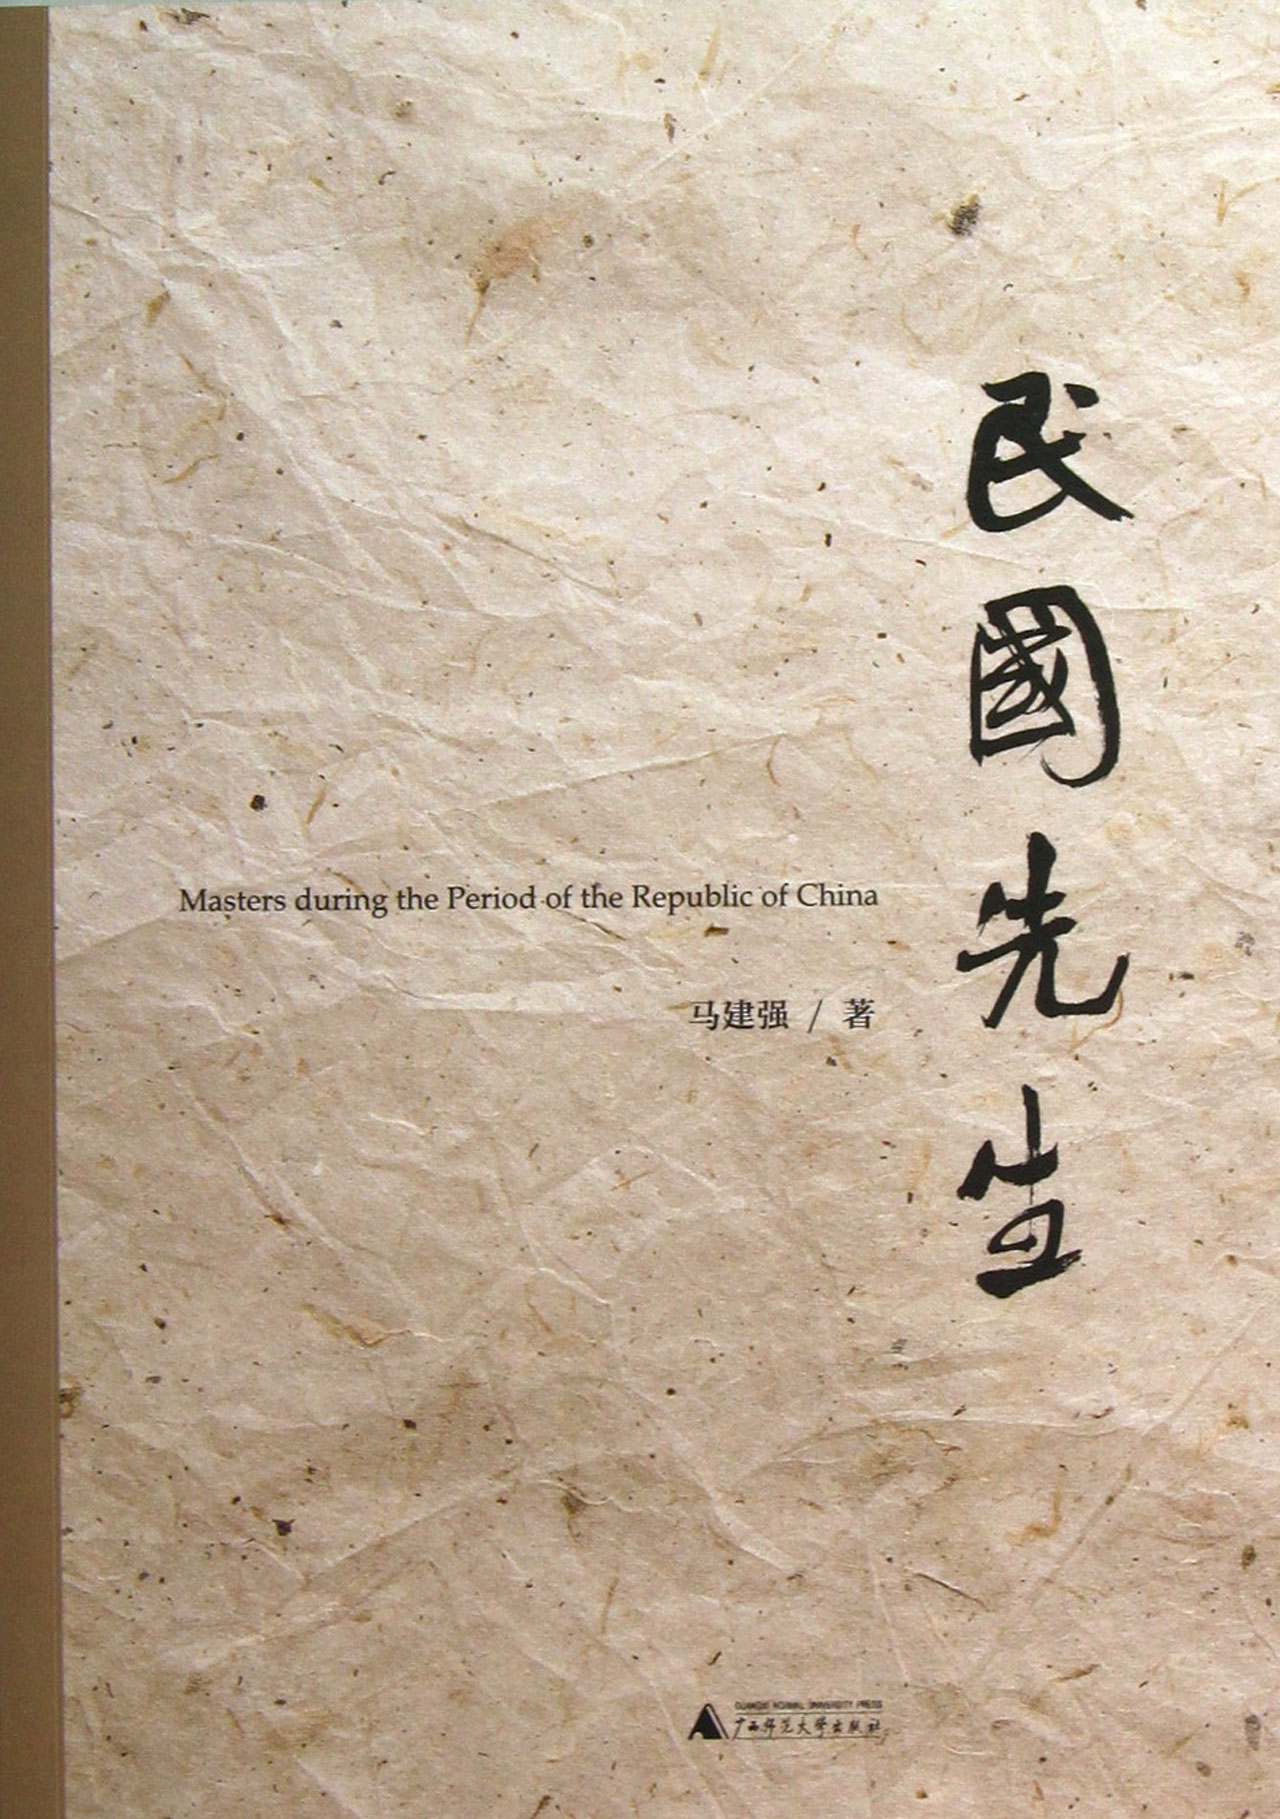 民國先生
Masters during the Period of the Republic of China
马建强 / 著
GUANGXI NORMAL UNIVERSITY PRESS
广西师范大学出版社